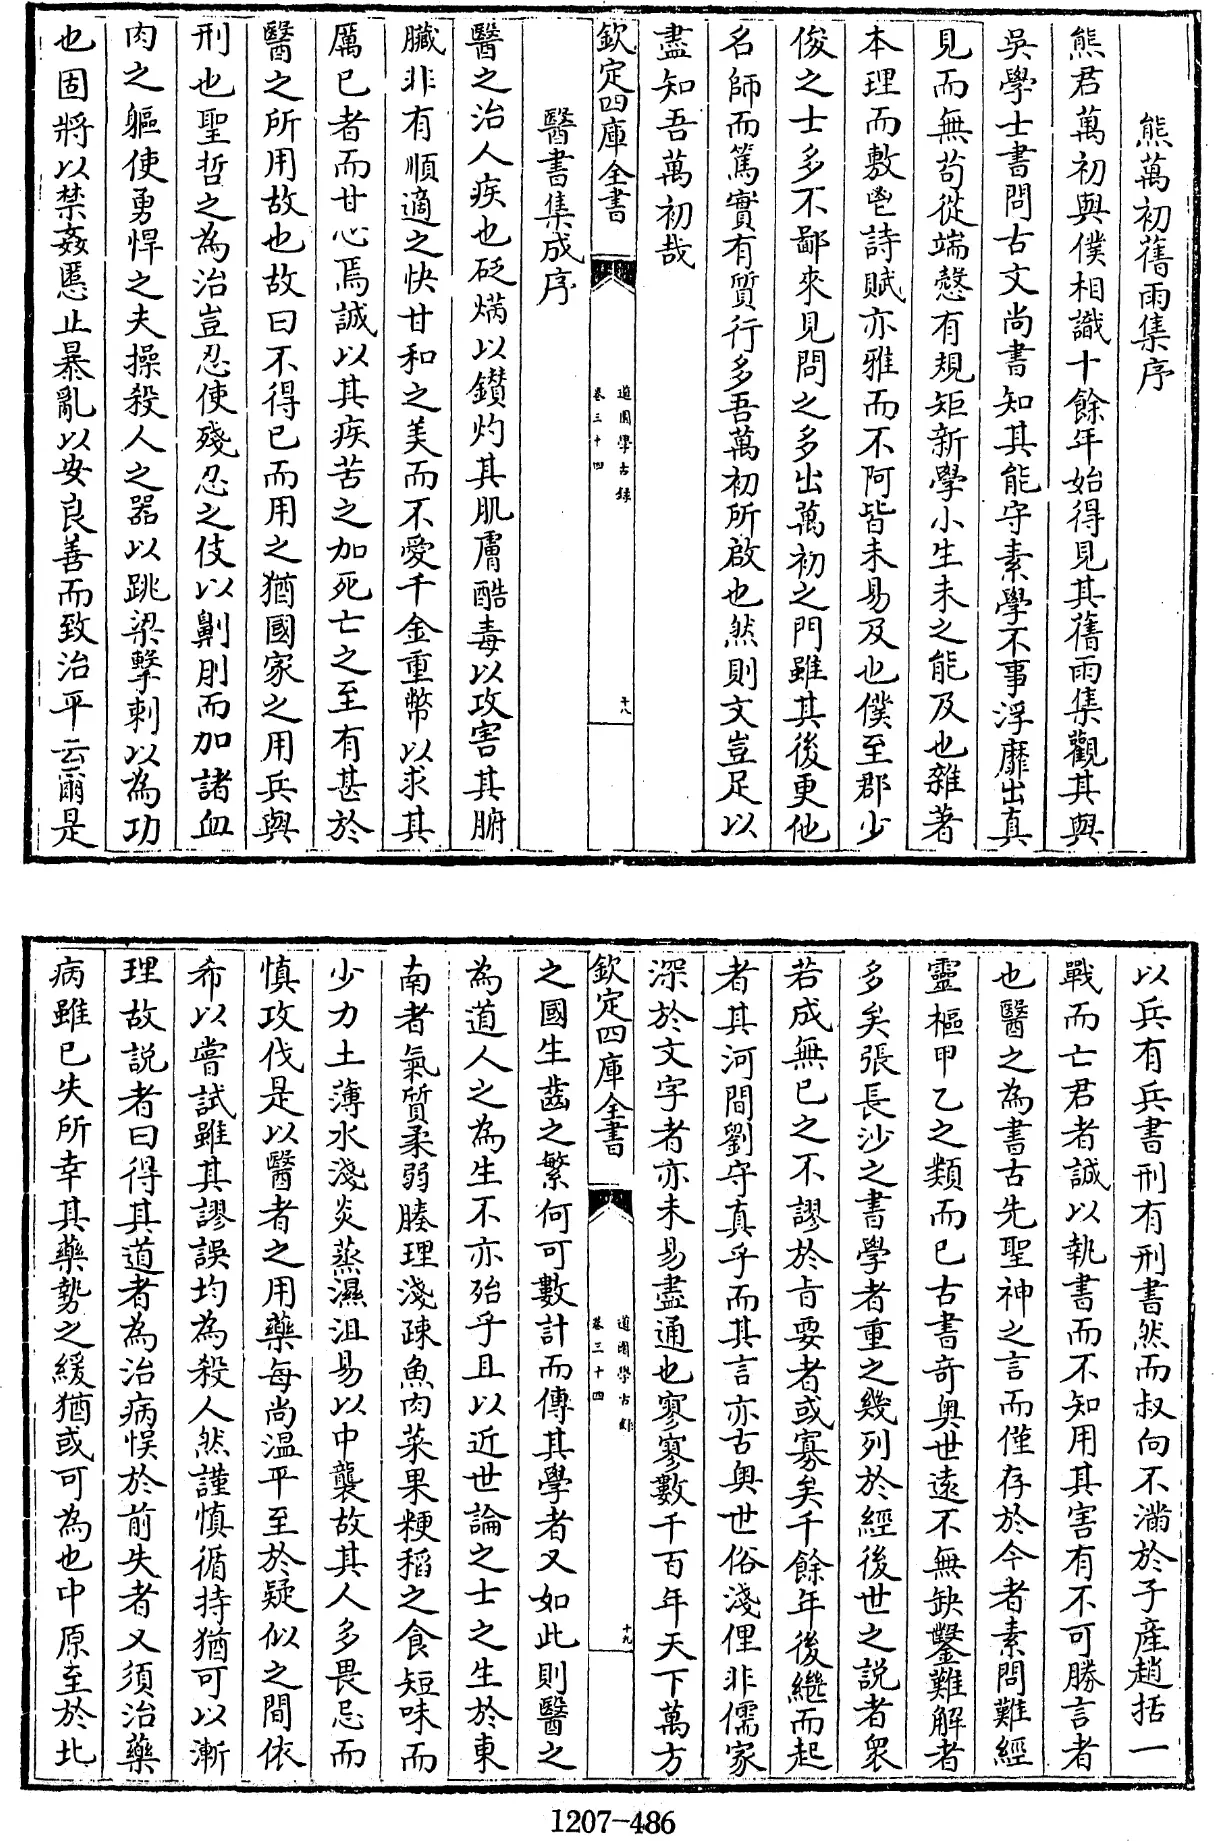 熊萬初舊雨集序
熊君萬初與僕相識十餘年始得見其舊雨集觀其與
吳學士書問古文尚書知其能守素學不事浮靡出真
見而無苟從端慤有規矩新學小生未之能及也雜著
本理而敷鬯詩賦亦雅而不阿皆未易及也僕至郡少
俊之士多不鄙來見問之多出萬初之門雖其後更他
名師而篤實有質行多吾萬初所啟也然則文豈足以
盡知吾萬初哉
欽定四庫全書
道園學古錄
卷三十四
十八
醫書集成序
醫之治人疾也砭焫以鑽灼其肌膚酷毒以攻害其腑
臟非有順適之快甘和之美而不愛千金重幣以求其
厲已者而甘心焉誠以其疾苦之加死亡之至有甚於
醫之所用故也故曰不得已而用之猶國家之用兵與
刑也聖哲之為治豈忍使殘忍之伎以劓刖而加諸血
肉之軀使勇悍之夫操殺人之器以跳梁擊刺以為功
也固將以禁姦慝止暴亂以安良善而致治平云爾是
以兵有兵書刑有刑書然而叔向不滿於子產趙括一
戰而亡君者誠以執書而不知用其害有不可勝言者
也醫之為書古先聖神之言而僅存於今者素問難經
靈樞甲乙之類而已古書奇奧世遠不無缺鑿難解者
多矣張長沙之書學者重之幾列於經後世之説者衆
若成無已之不謬於旨要者或寡矣千餘年後繼而起
者其河間劉守真乎而其言亦古奧世俗淺俚非儒家
深於文字者亦未易盡通也寥寥數千百年天下萬方
欽定四庫全書
道園學古錄
卷三十四
十九
之國生齒之繁何可數計而傳其學者又如此則醫之
為道人之為生不亦殆乎且以近世論之士之生於東
南者氣質柔弱腠理淺疎魚肉菜果粳稻之食短味而
少力土薄水淺炎蒸濕沮易以中襲故其人多畏忌而
慎攻伐是以醫者之用藥每尚溫平至於疑似之間依
希以嘗試雖其謬誤均為殺人然謹慎循持猶可以漸
理故説者曰得其道者為治病悞於前失者又須治藥
病雖已失所幸其藥勢之緩猶或可為也中原至於北
1207-486